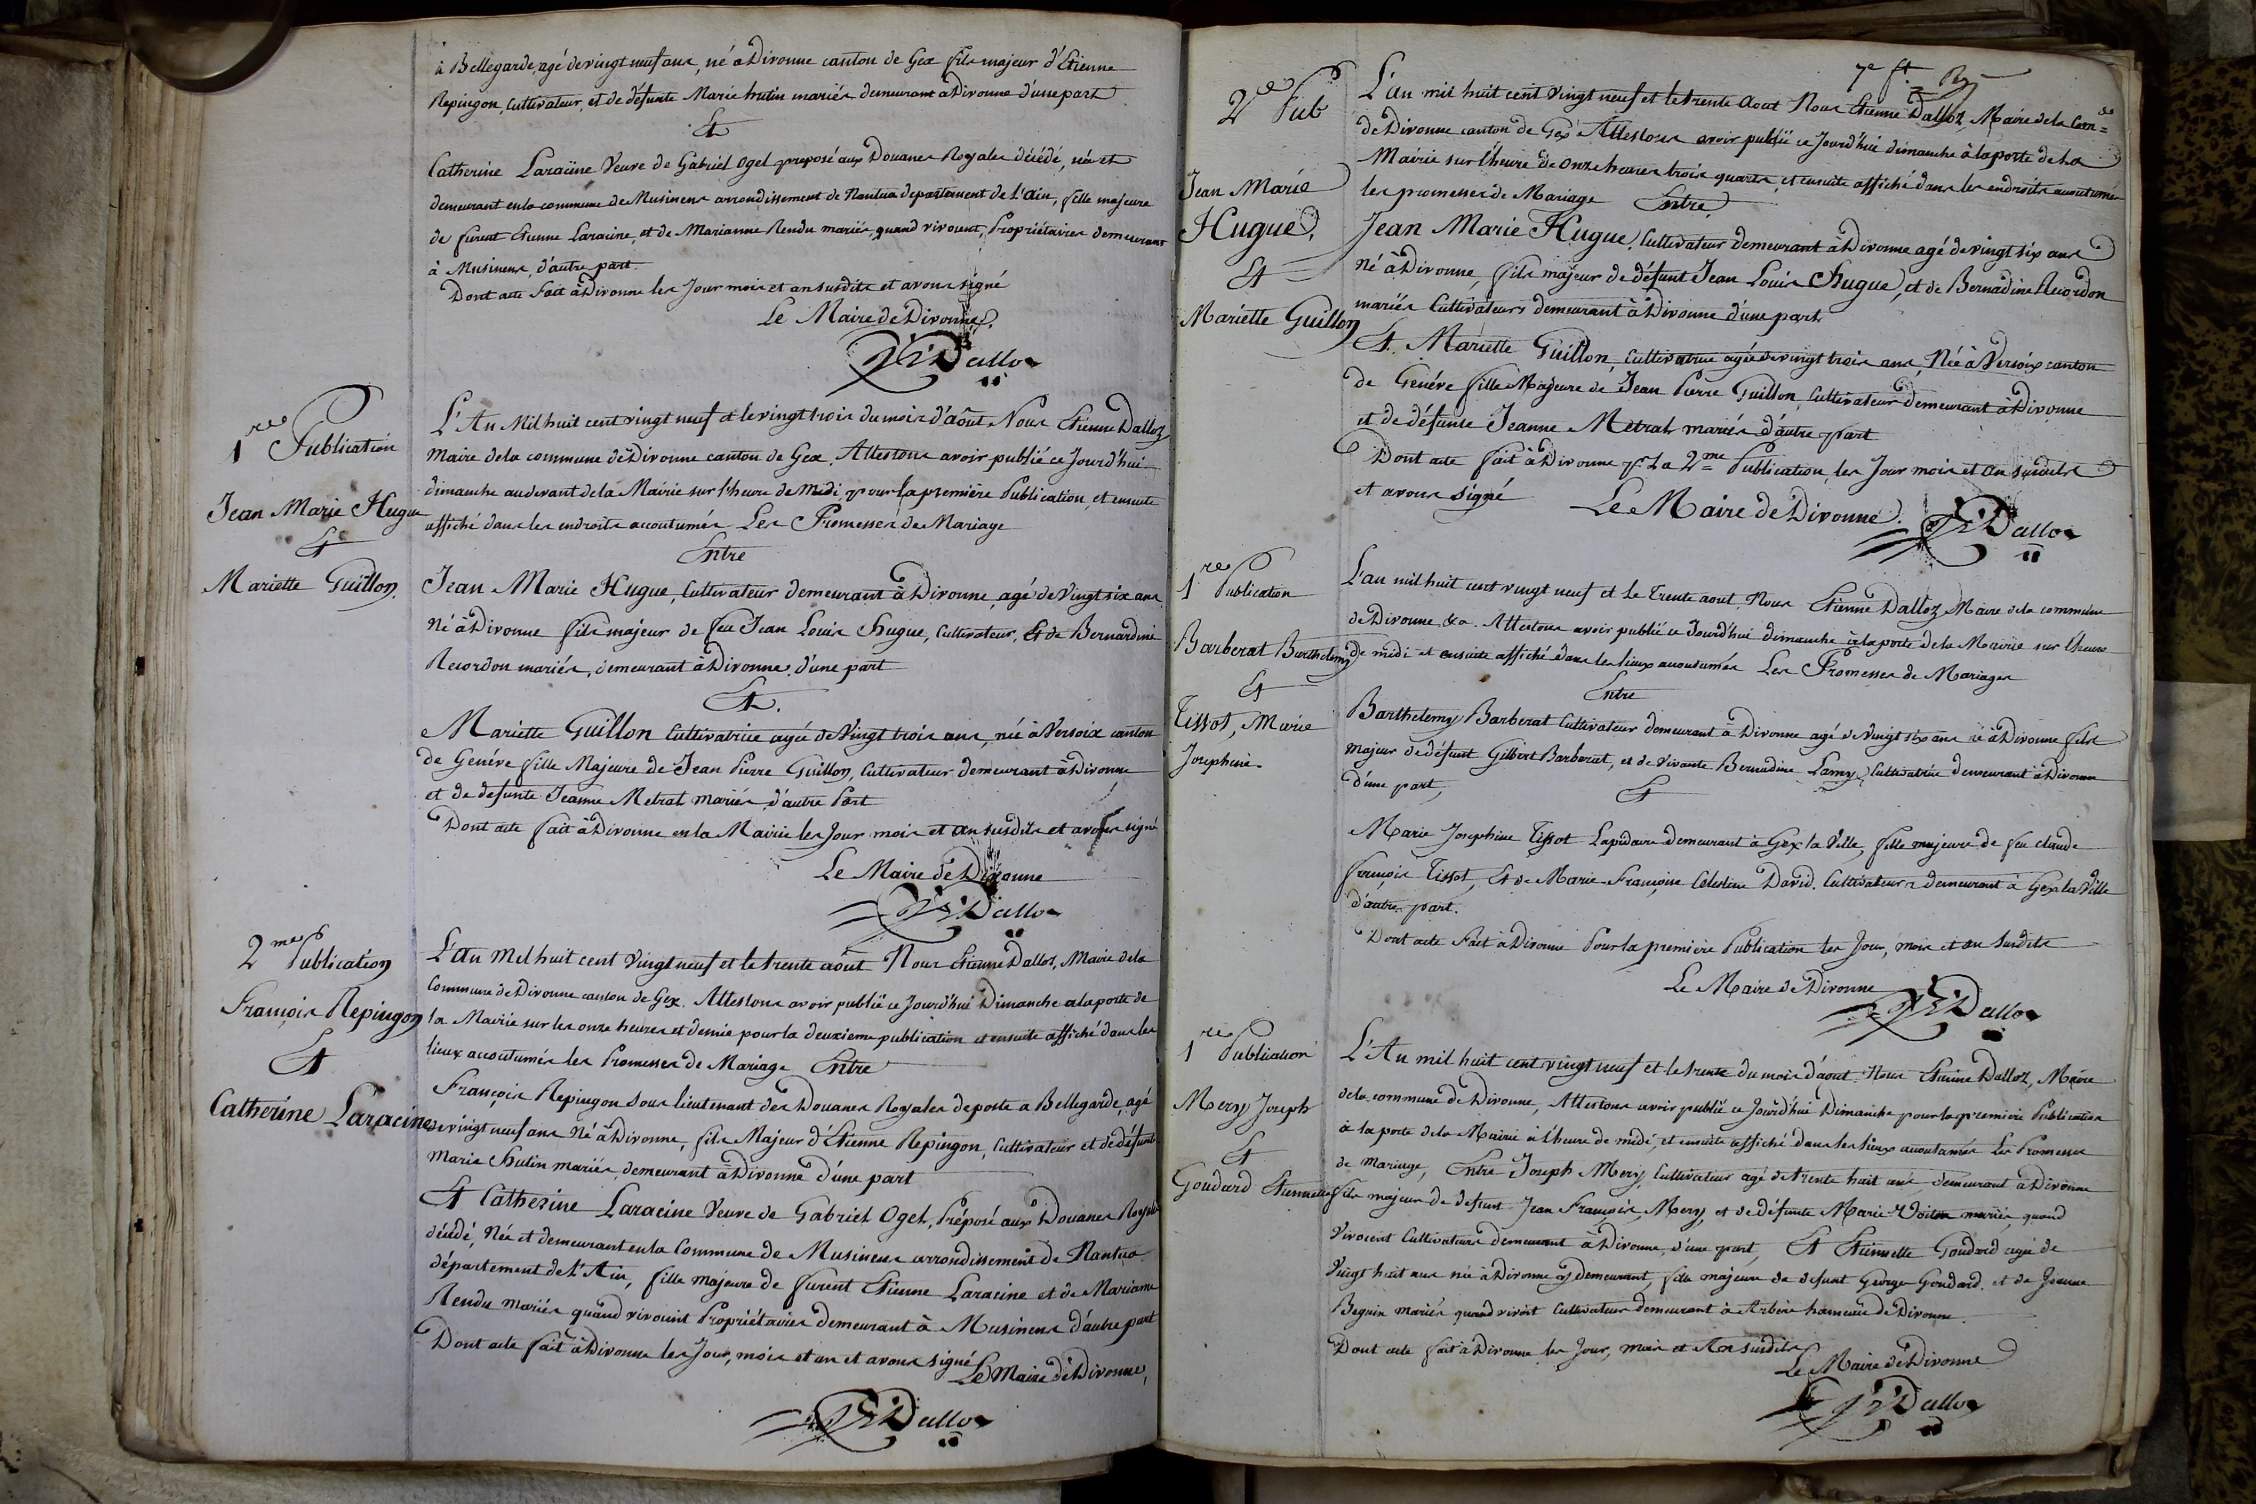 à Bellegarde, agé de vingt neuf ans, né à Divonne canton de Gex fils majeur d'Etienne
Repingon, Cultivateur, et de défunte Marie hutin mariés demeurant à Divonne d'une part
Et
Catherine Laracine Veuve de Gabriel Ogel preposé aux Douanes Royales décédé, née et
demeurant en la commune de Musinens arrondissement de Nantua departement de l'ain, fille majeure
de furent Etienne Laracine, et de Marianne Rendu mariés, quand vivoient, Propriétaires demeurant
à Musinens, d'autre part
Dont acte Fait à Divonne les Jour mois et an susdits et avons signé
Le Maire de Divonne.
Dalloz
1re Publication
Jean Marie Hugue
Et
Mariette Guillon
L'An Mil huit cent vingt neuf et le vingt trois du mois d'août Nous Etienne Dalloz
Maire de la commune de Divonne canton de Gex. Attestons avoir publié ce Jourd'hui
dimanche au devant de la Mairie sur l'heure de Midi, pour la première Publication, et ensuite
affiché dans les endroits accoutumés Les Promesses de Mariage
Entre
Jean Marie Hugue, Cultivateur demeurant à Divonne, agé de Vingt six ans
Né à Divonne fils majeur de feu Jean Louis Hugue, Cultivateur, Et de Bernardine
Recordon mariés, demeurant à Divonne, d'une part
Et.
Mariette Guillon Cultivatrice agée de Vingt trois ans, née à Versoix canton
de Genéve fille Majeure de Jean Pierre Guillon, Cultivateur demeurant à Divonne
et de defunte Jeanne Metral mariés, d'autre Part
Dont acte fait à Divonne en la Mairie les Jour mois et an susdits et avons signé
Le Maire de Divonne
Dalloz
2me Publication
François Repingon
Et
Catherine Laracine
L'an Mil huit cent Vingt neuf et le trente août Nous Etienne Dalloz, Maire de la
Commune de Divonne canton de Gex. Attestons avoir publié ce Jourd'hui Dimanche a la porte de
la Mairie sur les onze heures et demie pour la deuxieme publication et ensuite affiché dans les
lieux accoutumés les Promesses de Mariage Entre
François Repingon sous lieutenant des Douanes Royales de poste a Bellegarde, agé
de vingt neuf ans Né à Divonne, fils Majeur d'Etienne Repingon, Cultivateur et de défunte
Marie Hutin mariés, demeurant à Divonne d'une part
Et Catherine Laracine Veuve de Gabriel Ogel, Préposé aux Douanes Royales
décédé, Née et demeurant en la Commune de Musinens arrondissement de Nantua
département de l'Ain, fille majeure de furent Etienne Laracine et de Marianne
Rendu mariés quand vivoient Propriétaires demeurant à Musinens d'autre part
Dont acte fait à Divonne les Jour, mois et an et avons signé
Le Maire de Divonne,
Dalloz
7e ft
2e Pub
Jean Marie
Hugue,
Et
Mariette Guillon
L'an mil huit cent Vingt neuf et le trente Aout Nous Etienne Dalloz, Maire de la Com=ne
de Divonne canton de Gex Attestons avoir publié ce Jourd'hui dimanche à la porte de la
Mairie sur l'heure de onze heures trois quarts, et ensuite affiché dans les endroits accoutumés
les promesses de Mariage Entre
Jean Marie Hugue, Cultivateur demeurant à Divonne agé de vingt six ans
Né à Divonne, fils majeur de défunt Jean Louis Hugue, et de Bernadine Recordon
mariés Cultivateurs demeurant à Divonne d'une part
Et Mariette Guillon, Cultivatrice agée de vingt trois ans, Née à Versoix canton
de Genéve fille Majeure de Jean Pierre Guillon, Cultivateur demeurant à Divonne
et de défunte Jeanne Metral mariés d'autre part
Dont acte fait à Divonne pr La 2me Publication, les Jour mois et an susdits
et avons signé
Le Maire de Divonne.
Dalloz
1re Publication
Barberat Barthelemy
Et
Tissot, Marie
Josephine.
L'an mil huit cent vingt neuf et le Trente aout, Nous Etienne Dalloz Maire de la commune
de Divonne &a. Attestons avoir publié ce Jourd'hui dimanche à la porte de la Mairie sur l'heure
de midi et ensuite affiché dans les lieux accoutumés Les Promesses de Mariages
Entre
Barthelemy Barberat Cultivateur demeurant à Divonne agé de Vingt six ans né à Divonne fils
majeur de défunt Gilbert Barberat, et de Vivante Bernadine Lamy, Cultivatrice demeurant à Divonne
d'une part,
Et
Marie Josephine Tissot Lapidaire demeurant à Gex la Ville, fille majeure de feu Claude
françois Tissot, Et de Marie Françoise Celestine David. Cultivateurs demeurant à Gex la Ville
d'autre part.
Dont acte Fait à Divonne Pour la premiere Publication les Jour, mois et an Susdits
Le Maire de Divonne
Dalloz
1re Publication
Mery Joseph
Et
Goudard Etiennette
L'An mil huit cent vingt neuf et le trente du mois d'aout. Nous Etienne Dalloz, Maire
de la commune de Divonne, Attestons avoir publié ce Jourd'hui Dimanche pour la premiere Publication
à la porte de la Mairie à l'heure de midi, et ensuite affiché dans les lieux accoutumés Les Promesses
de Mariage, Entre Joseph Mery, Cultivateur agé de trente huit ans demeurant à Divonne
fils majeur de defunt Jean François Mery, et de défunte Marie Voiton mariés, quand
Vivoient Cultivateurs demeurant à Divonne, d'une part, Et Etiennette Goudard agée de
Vingt huit ans née à Divonne y demeurant, fille majeure de defunt George Goudard. et de Jeanne
Beguin mariés quand vivoit Cultivateur demeurant à Arbère hameau de Divonne.
Dont acte fait à Divonne les Jour, mois et An susdits
Le Maire de Divonne
Dalloz